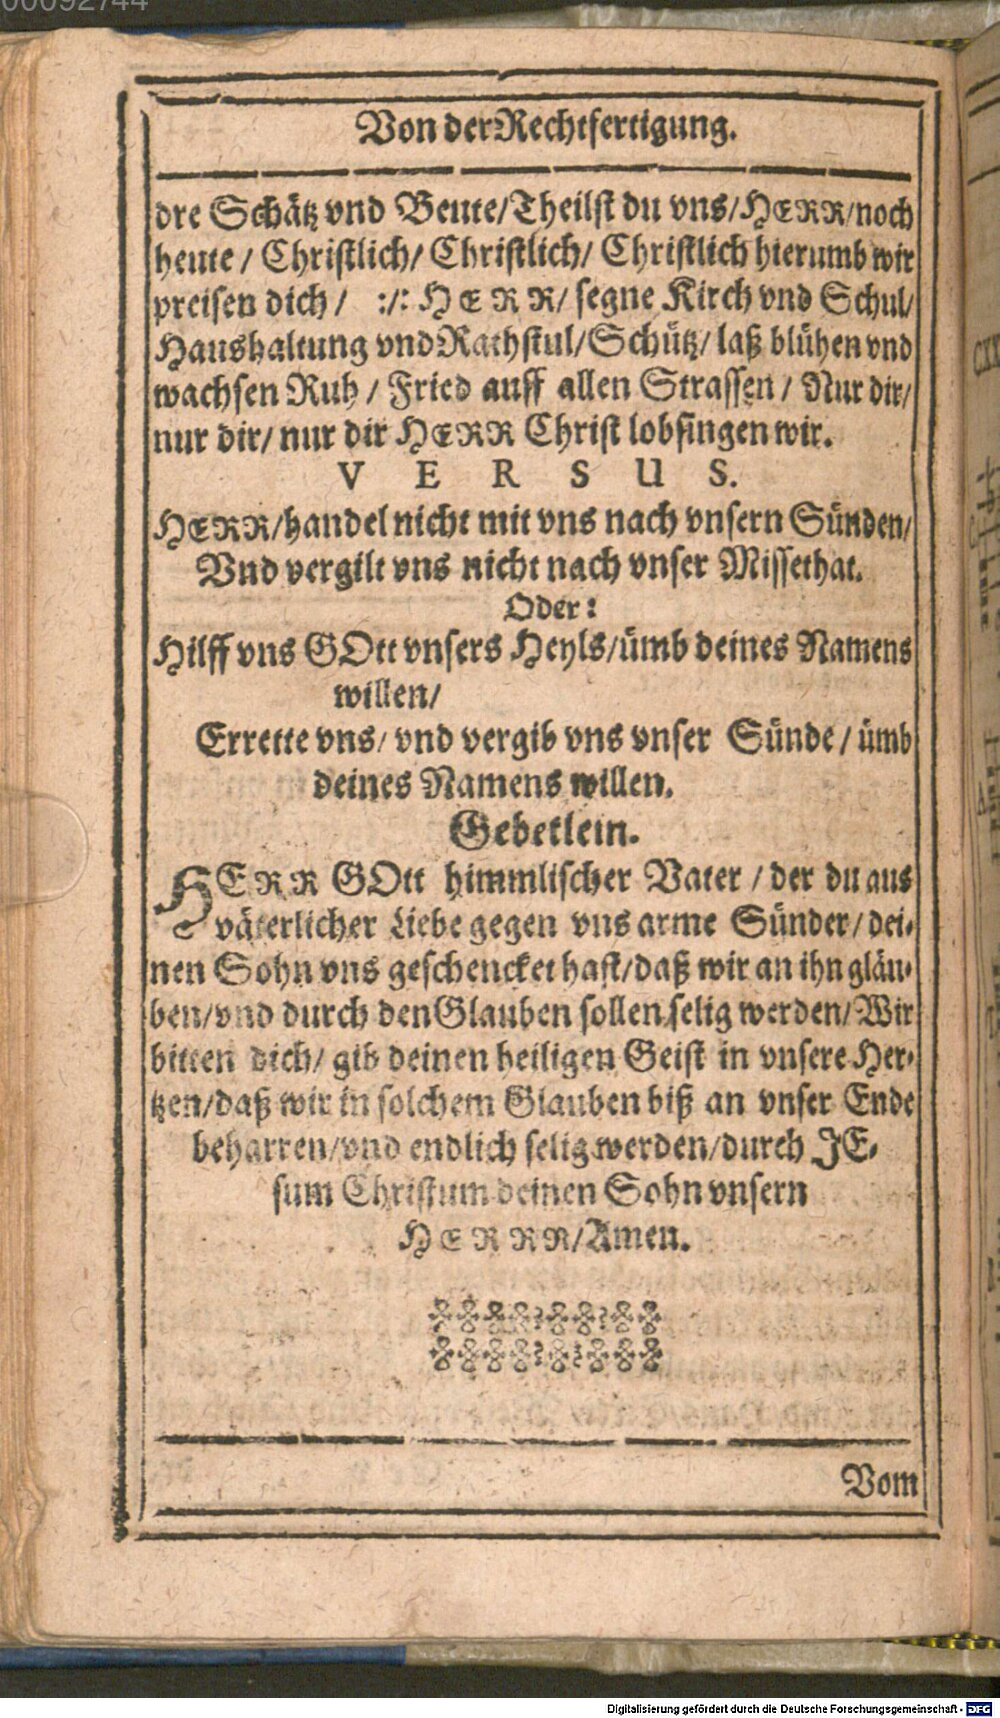 00092744
Von der Rechtfertigung.
dre Schätz vnd Beute/Theilst du vns/HERR/noch
heute / Christlich/ Christlich/ Christlich hierumb wir
preisen dich / :/: HERR/ segne Kirch vnd Schul/
Haushaltung vnd Rathstul/Schütz/ laß blühen vnd
wachsen Ruh / Fried auff allen Strassen / Nur dir/
nur dir/ nur dir HERR Christ lobsingen wir.
VERSUS.
HERR/handel nicht mit vns nach vnsern Sünden/
Vnd vergilt vns nicht nach vnser Missethat.
Oder:
Hilff vns GOtt vnsers Heyls/ümb deines Namens
willen/
Errette vns/ vnd vergib vns vnser Sünde / ümb
deines Namens willen.
Gebetlein.
HERR GOtt himmlischer Vater / der du aus
väterlicher Liebe gegen vns arme Sünder/ dei-
nen Sohn vns geschencket hast/daß wir an ihn gläu-
ben/vnd durch den Glauben sollen selig werden/Wir
bitten dich/ gib deinen heiligen Geist in vnsere Her-
tzen/daß wir in solchem Glauben biß an vnser Ende
beharren/vnd endlich selig werden/durch JE-
sum Christum deinen Sohn vnsern
HERRR/Amen.
Vom
Digitalisierung gefördert durch die Deutsche Forschungsgemeinschaft - DFG